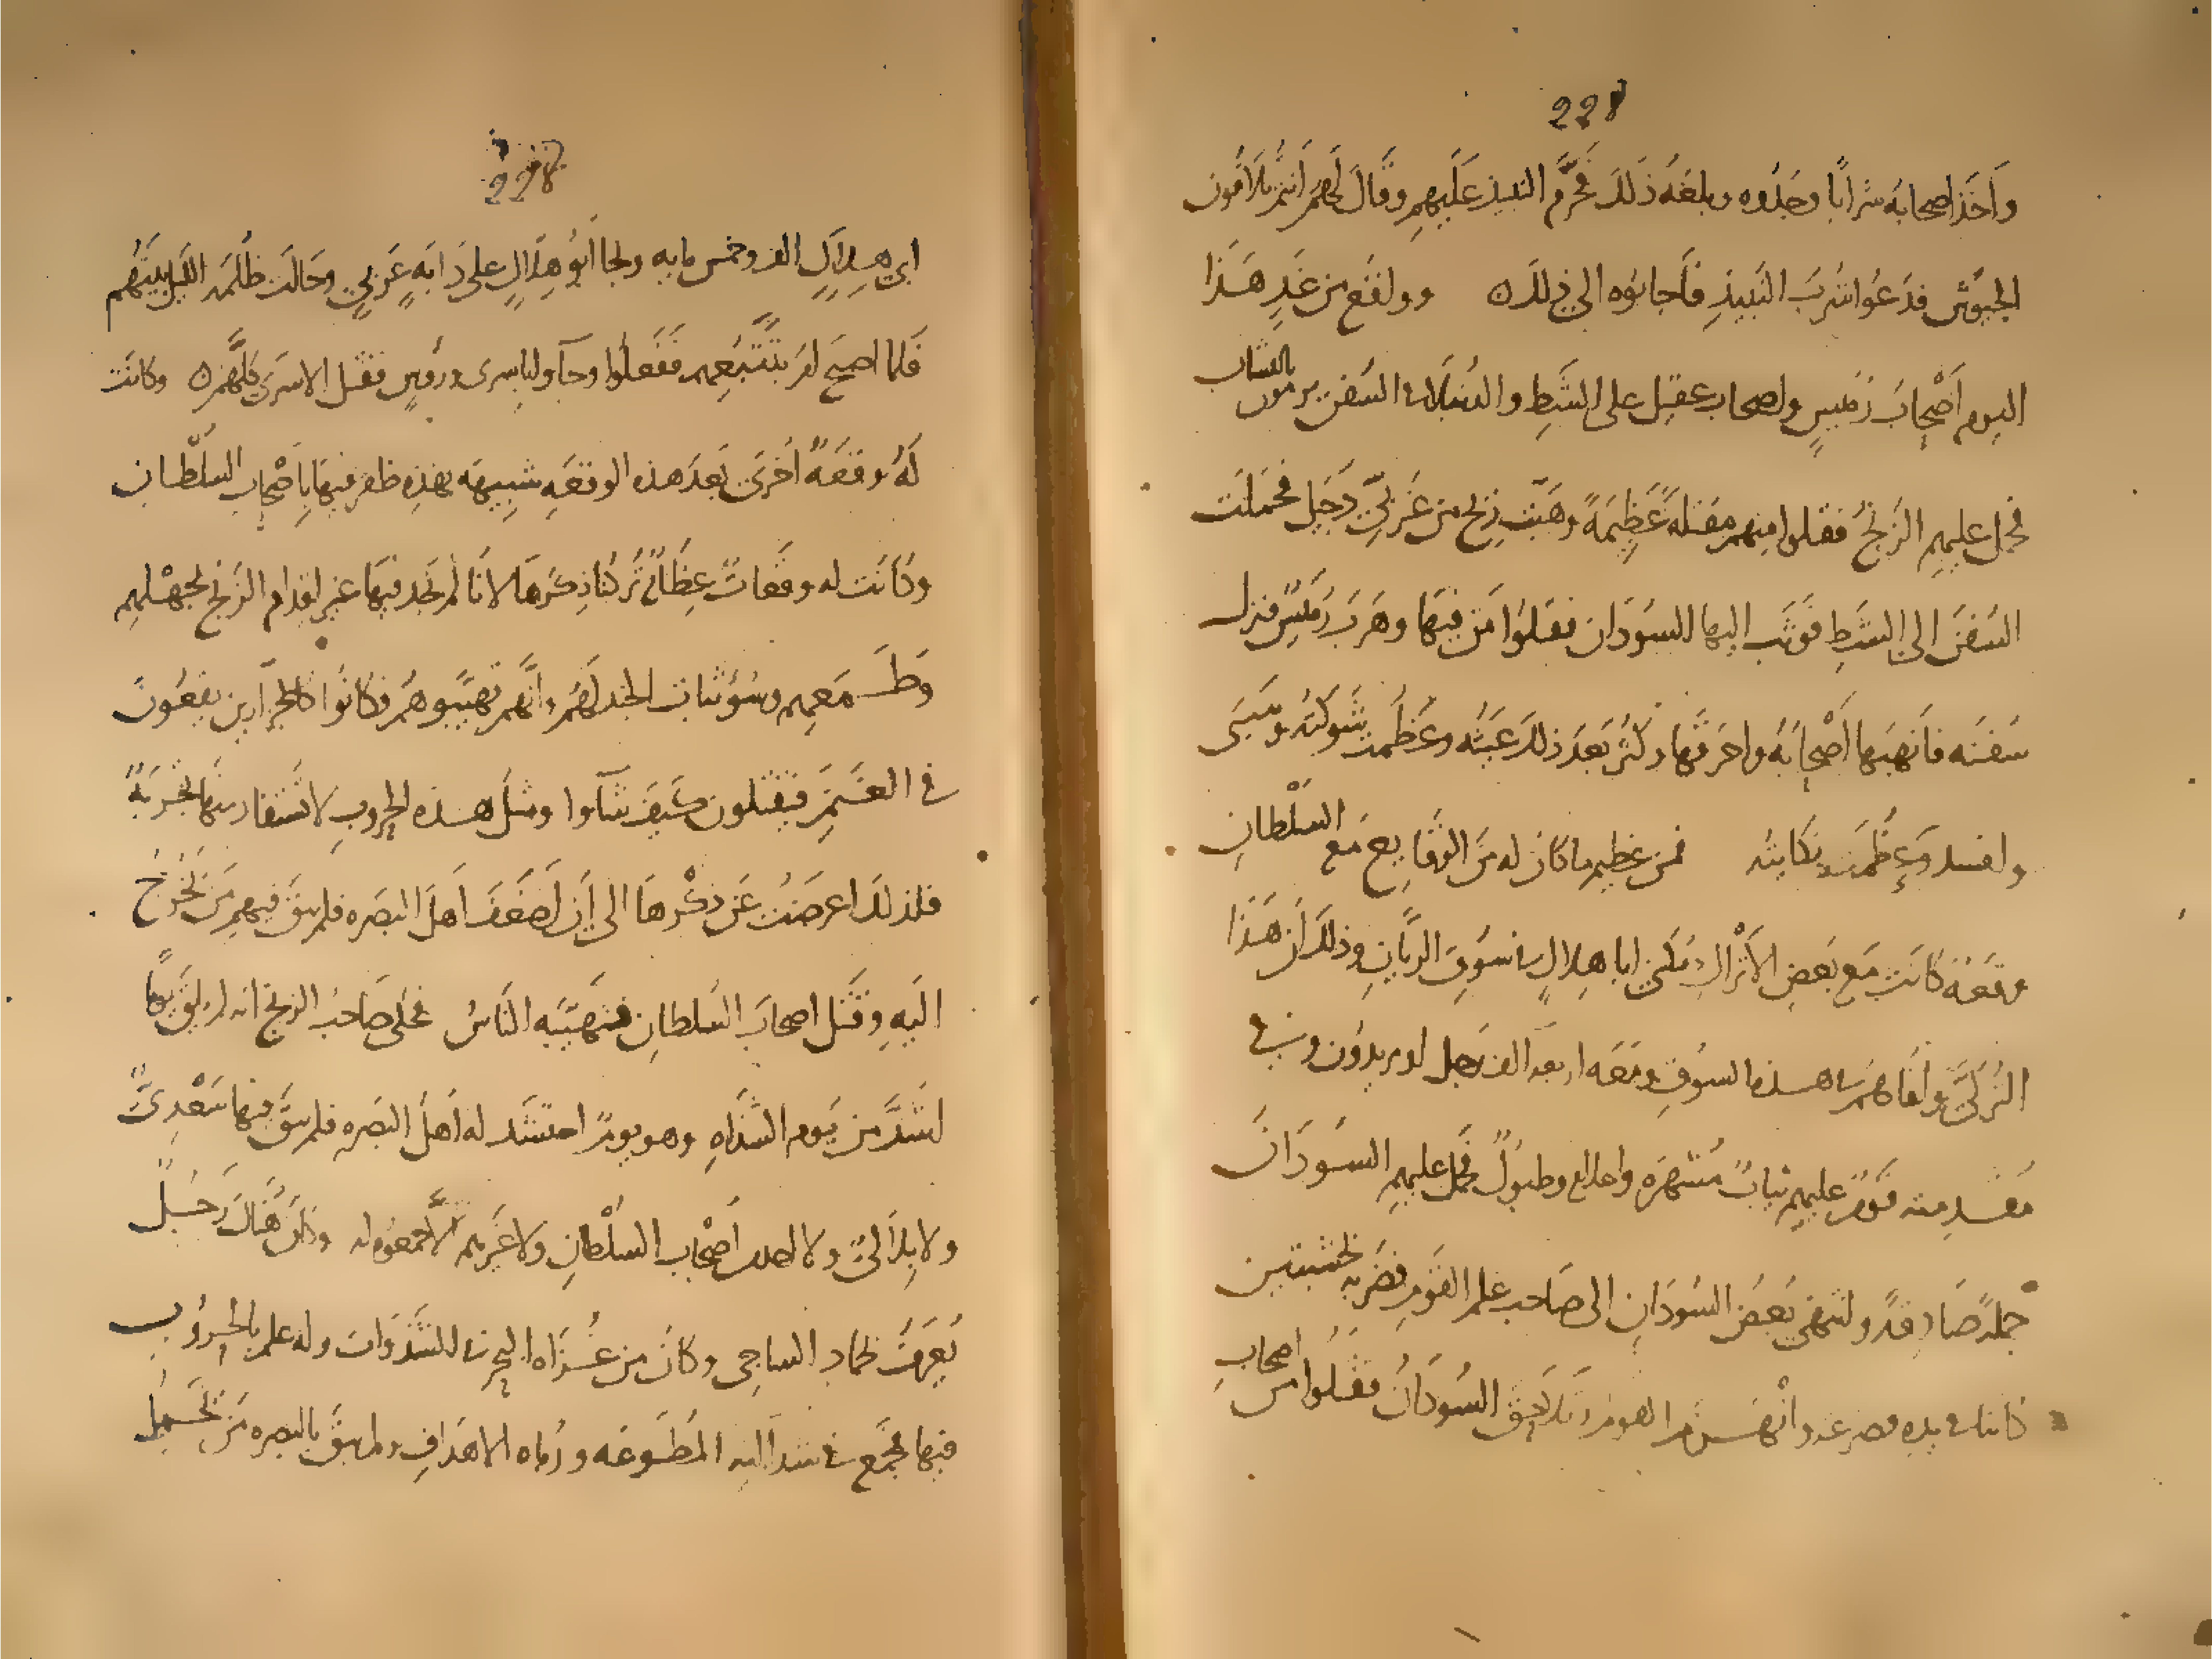 228
وَاخَذ اصحابهُ شرابًا وجَدُوه وبلغهُ ذلك فحرَّم النبيذ عَلَيهم وقَالَ لَهُمْ انتمْ تلاقون
الجيوُش فدَعُوا شربَ النَبِيذِ فاَجابوُه الى ذلك ووافَقَع من غَدِ هَذا
اليوم أصْحابُ رُميسٍ واصحاب عقيل على الشَطِ والدُنبلا في السُفن يرمون بالنشاب
فحمل عليهم الزَنجُ فقتلوا منهم مقتلةً عَظِيمَةً وهَبّت رِيح من غَربيّ دجَيل فحَملَت
السُفنَ الى الشَطِ فوَثَب اليها السوُدَان فقتلوُا مَن فيهَا وهَربَ رُمَيسٌ فنزل
سَفنَه فاَنهَبَها أَصْحابَهُ واحرَقَها وكثر بَعدَ ذلك عَبَثُه وعَظُمت شَوكَتهُ وسَبَى
وافسد وَعظُمَت نِكايتُه فمن عظيم ما كان له من الوَقايع مَع السُلْطانِ
وقعَةٌ كانَت مَع بَعض الاَتْراكِ يُكنى ابا هِلالٍ في سُوَق الريّانِ وذلك اَن هَذا
التُركيَّ وافَاهمُ في هذه السوُقِ ومَعَه اربعه الف رَجل او يزيدوُن وفي
مُقدمته قَومٌ عليهم ثيابٌ مُشهَره واعلام وطبوُلٌ فحمل عليهم السوُدَانُ
حملةً صَادِقةً وانتهَى بَعضُ السُودَانِ الى صَاحب علم القَومِ فضَربه بخشبتين
كانتا في يدِه فصرعه وانْهَـزم القوم وتَلاحَق السُودَانُ فقَتلوا من اصحاب
228
ابى هِلالٍ الف وخمس مايه ونجا اَبوُ هِلالٍ على دَابّهٍ عَربيٍ وحَالت ظُلمَة الليل بينَهُم
فَلما اصبح امر بتَتَبُعِهم فَفَعلُوا وجآوا باسرى ورُؤسٍ فقتل الاسرَى كلَّهم وكانَت
لَهُ وقعَةٌ اخرىَ بَعد هذه الوقعَهِ شبيهَه بهذِه ظفر فيهَا باَصْحابِ السُلْطان
وكاَنَت له وقَعَاتٌ عِظَامٌ تَركنا ذِكرَها لانَا لم نجد فيهَا غير اقدام الزَنج لجهْلهم
وطَـمَعِهم وسُوء ثبات الجند لَهُم وانَّهم تهَيّبوهُم فكَانوُا كالجزارين يَقعُونَ
في الغَـنَمِ فيَقتلون كَيفَ شآوا ومثل هـذه الحروبِ لا تُستفاد منهَا تجربَةً
فلذلك اعرضتُ عَن ذكْرها الى اَن ضَعَفَ اَهلُ البَصَره فلم يَبقَ فيهم مَن يخَرُجُ
اليَهِ وقتَل اصحاب السُلطانِ فتهَيَبه الناسُ فحكى صَاحبُ الزنج انه لم يلق يومًا
اشدَّ من يَوم الشَذاهِ وهو يومٌ احتشَد له اَهلُ البَصره فلم يبَقَ فيها سَعْدِىٌّ
ولا بِلالىٌ ولا احد من اَصْحاب السلْطانِ ولا غَيرهم الاّ جمعوُا له وكانَ هُناك رَجـُلٌ
يُعرَفُ بحماد الساجى وكان من غُـزاه البحر في الشَذَوات وله علم بالحـروُبِ
فيها فجمَع في شذاَاته المُطَـوعَه ورُماه الاهدَافِ ولم يبقَ بالبصره مَن يَحمـلُ